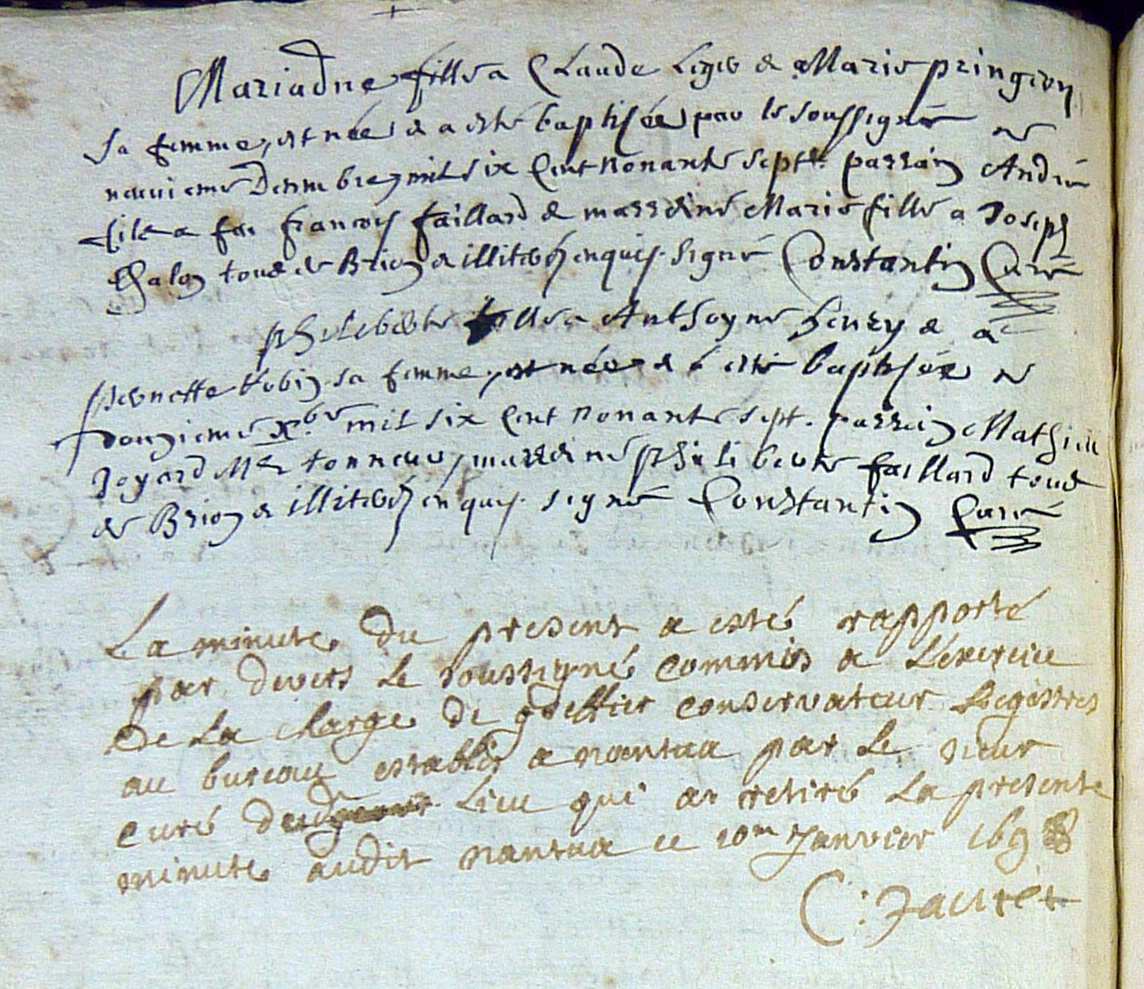 Mariadne fille a Claude & Marie pringeon
sa femme, est née & a esté baptisée par le soussigné ce
neuvieme Decembre mil six cent nonante sept. parrain André
fils a feu françois faillard & marreine Marie fille a Joseph
Chalon tous de Brion & illiterés enquis. signé Constantin Curé
philiberte fille a Anthoyne henry & a
sa femme, est née & a esté baptisée ce
xbre mil six cent nonante sept. parrain Mathieu
Joyard Me tonneur, marreine philiberte faillard tous
de Brion & illiterés enquis. signé Constantin Curé
La minute du present a estés rapporté
par devers le soussigné commis a L'exercice
De La charge de greffier conservateur Registres
au bureau establis a nantua par Le sieur
curé dud Lieu qui as retirés La presente
minute audit nantua ce 10m Janvier 1698
C: Jauret